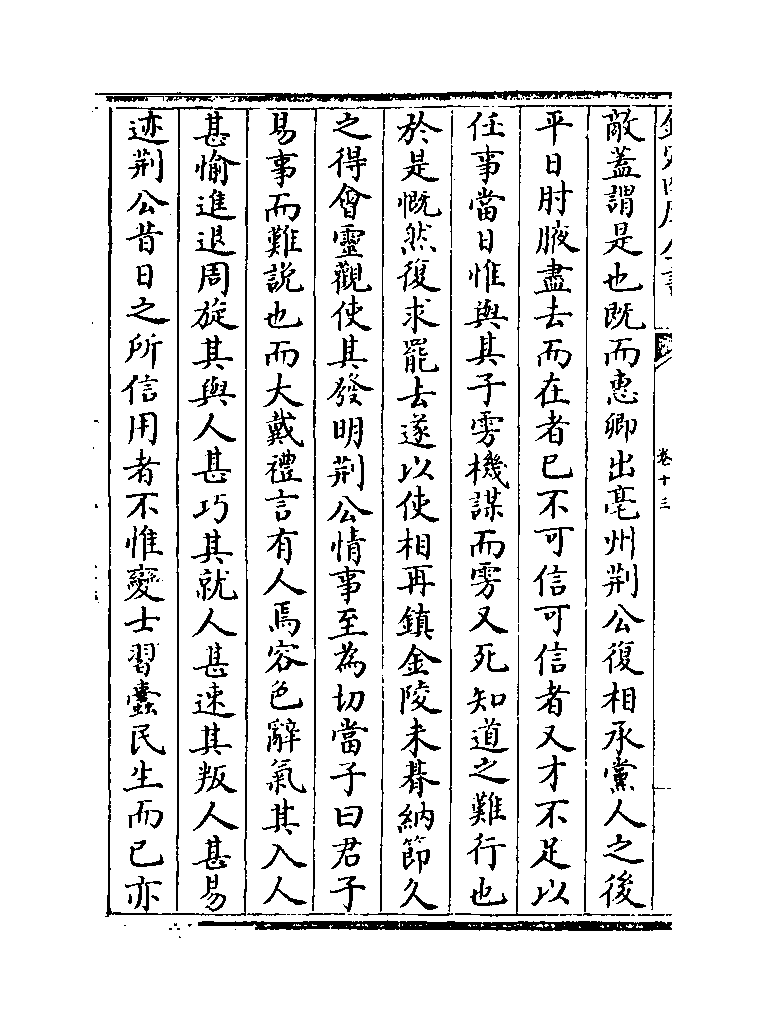 欽定四庫全書
卷十三
敵蓋謂是也既而惠卿出亳州荆公復相承黨人之後
平日肘腋盡去而在者已不可信可信者又才不足以
任事當日惟與其子雱機謀而雱又死知道之難行也
於是慨然復求罷去遂以使相再鎮金陵未朞納節久
之得㑹靈觀使其發明荆公情事至為切當子曰君子
易事而難説也而大戴禮言有人焉容色辭氣其入人
甚愉進退周旋其與人甚巧其就人甚速其叛人甚易
迹荆公昔日之所信用者不惟變士習蠧民生而已亦